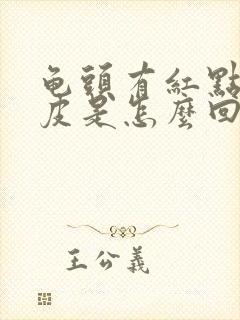 龟頭有紅點
皮是怎麼回
王公義